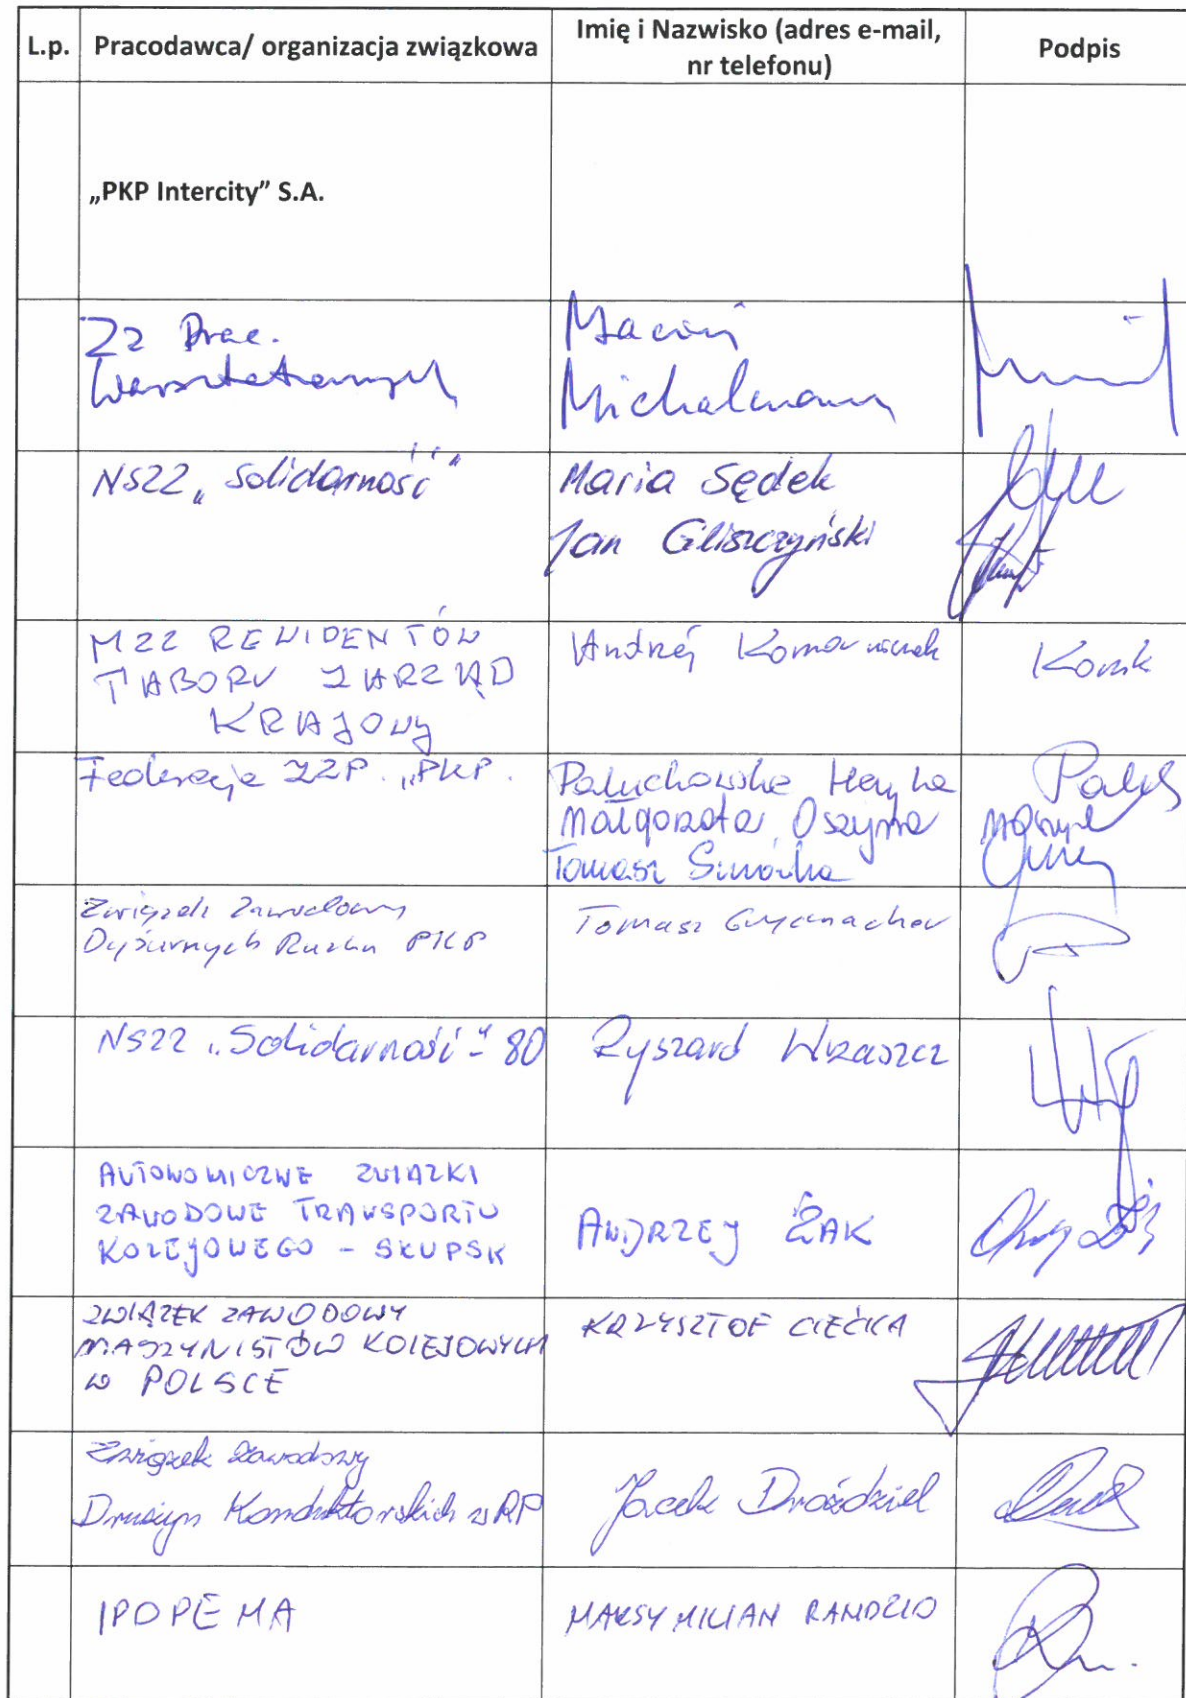 L.p. Pracodawca/ organizacja związkowa Imię i Nazwisko (adres e-mail, nr telefonu) Podpis
„PKP Intercity” S.A.
ZZ Prac.
Warsztatowych
Maciej
Michalmann
NSZZ „Solidarność”
Maria Sędek
Jan Gliszczyński
MZZ REWIDENTÓW
TABORU ZARZĄD
KRAJOWY
Andrzej
Federacja ZZP. „PKP.
Małgorzata Oszyma
Tomasz
Związek Zawodowy
Dyżurnych Ruchu PKP
Tomasz
NSZZ „Solidarność”-80
Ryszard Wraszcz
AUTONOMICZNE ZWIĄZKI
ZAWODOWE TRANSPORTU
KOLEJOWEGO - SŁUPSK
ANDRZEJ ŻAK
ZWIĄZEK ZAWODOWY
MASZYNISTÓW KOLEJOWYCH
W POLSCE
KRZYSZTOF CIEĆKA
Związek Zawodowy
Drużyn Konduktorskich w RP
Jacek Droździel
IPOPEMA
MAKSYMILIAN RANDZIO